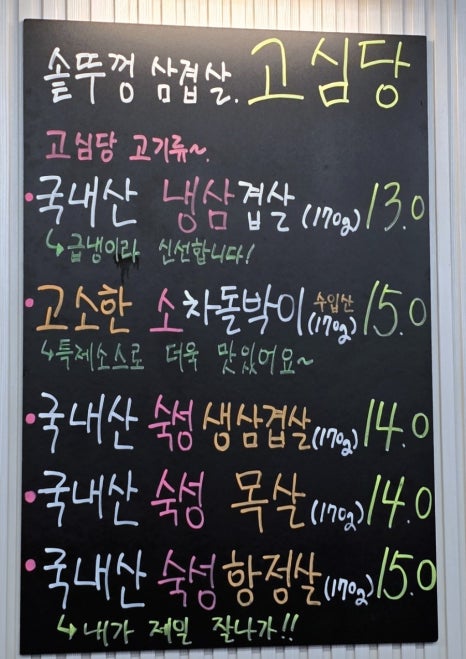 솥뚜껑 삼겹살. 고심당
고심당 고기류~.
국내산 냉삼겹살 (170g) 13.0
↳급냉이라 신선합니다!
고소한 소차돌박이 수입산 (170g) 15.0
↳특제소스로 더욱 맛있어요~
국내산 숙성 생삼겹살 (170g) 14.0
국내산 숙성 목살 (170g) 14.0
국내산 숙성 항정살 (170g) 15.0
↳내가 제일 잘나가!!